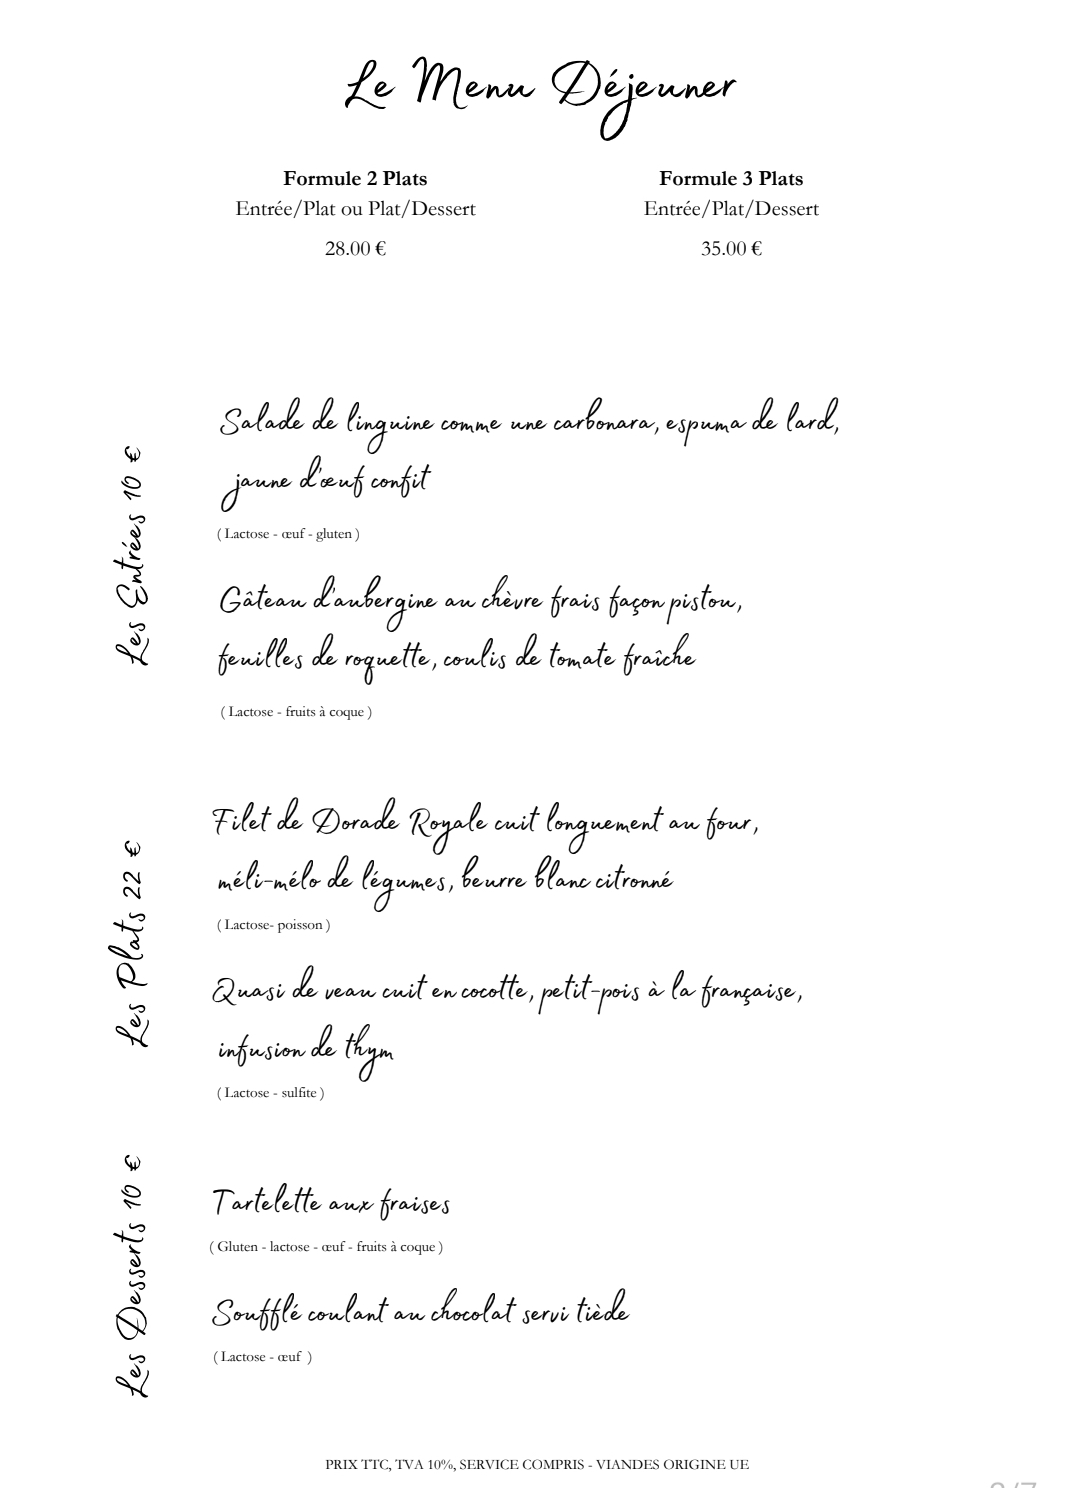 Le Menu Déjeuner
Formule 2 Plats
Entrée/Plat ou Plat/Dessert
28.00 €
Formule 3 Plats
Entrée/Plat/Dessert
35.00 €
Les Entrées 10 €
Salade de linguine comme une carbonara, espuma de lard,
jaune d'œuf confit
( Lactose - œuf - gluten )
Gâteau d'aubergine au chèvre frais façon pistou,
feuilles de roquette, coulis de tomate fraîche
( Lactose - fruits à coque )
Les Plats 22 €
Filet de Dorade Royale cuit longuement au four,
méli-mélo de légumes, beurre blanc citronné
( Lactose- poisson )
Quasi de veau cuit en cocotte, petit-pois à la française,
infusion de thym
( Lactose - sulfite )
Les Desserts 10 €
Tartelette aux fraises
( Gluten - lactose - œuf - fruits à coque )
Soufflé coulant au chocolat servi tiède
( Lactose - œuf )
PRIX TTC, TVA 10%, SERVICE COMPRIS - VIANDES ORIGINE UE